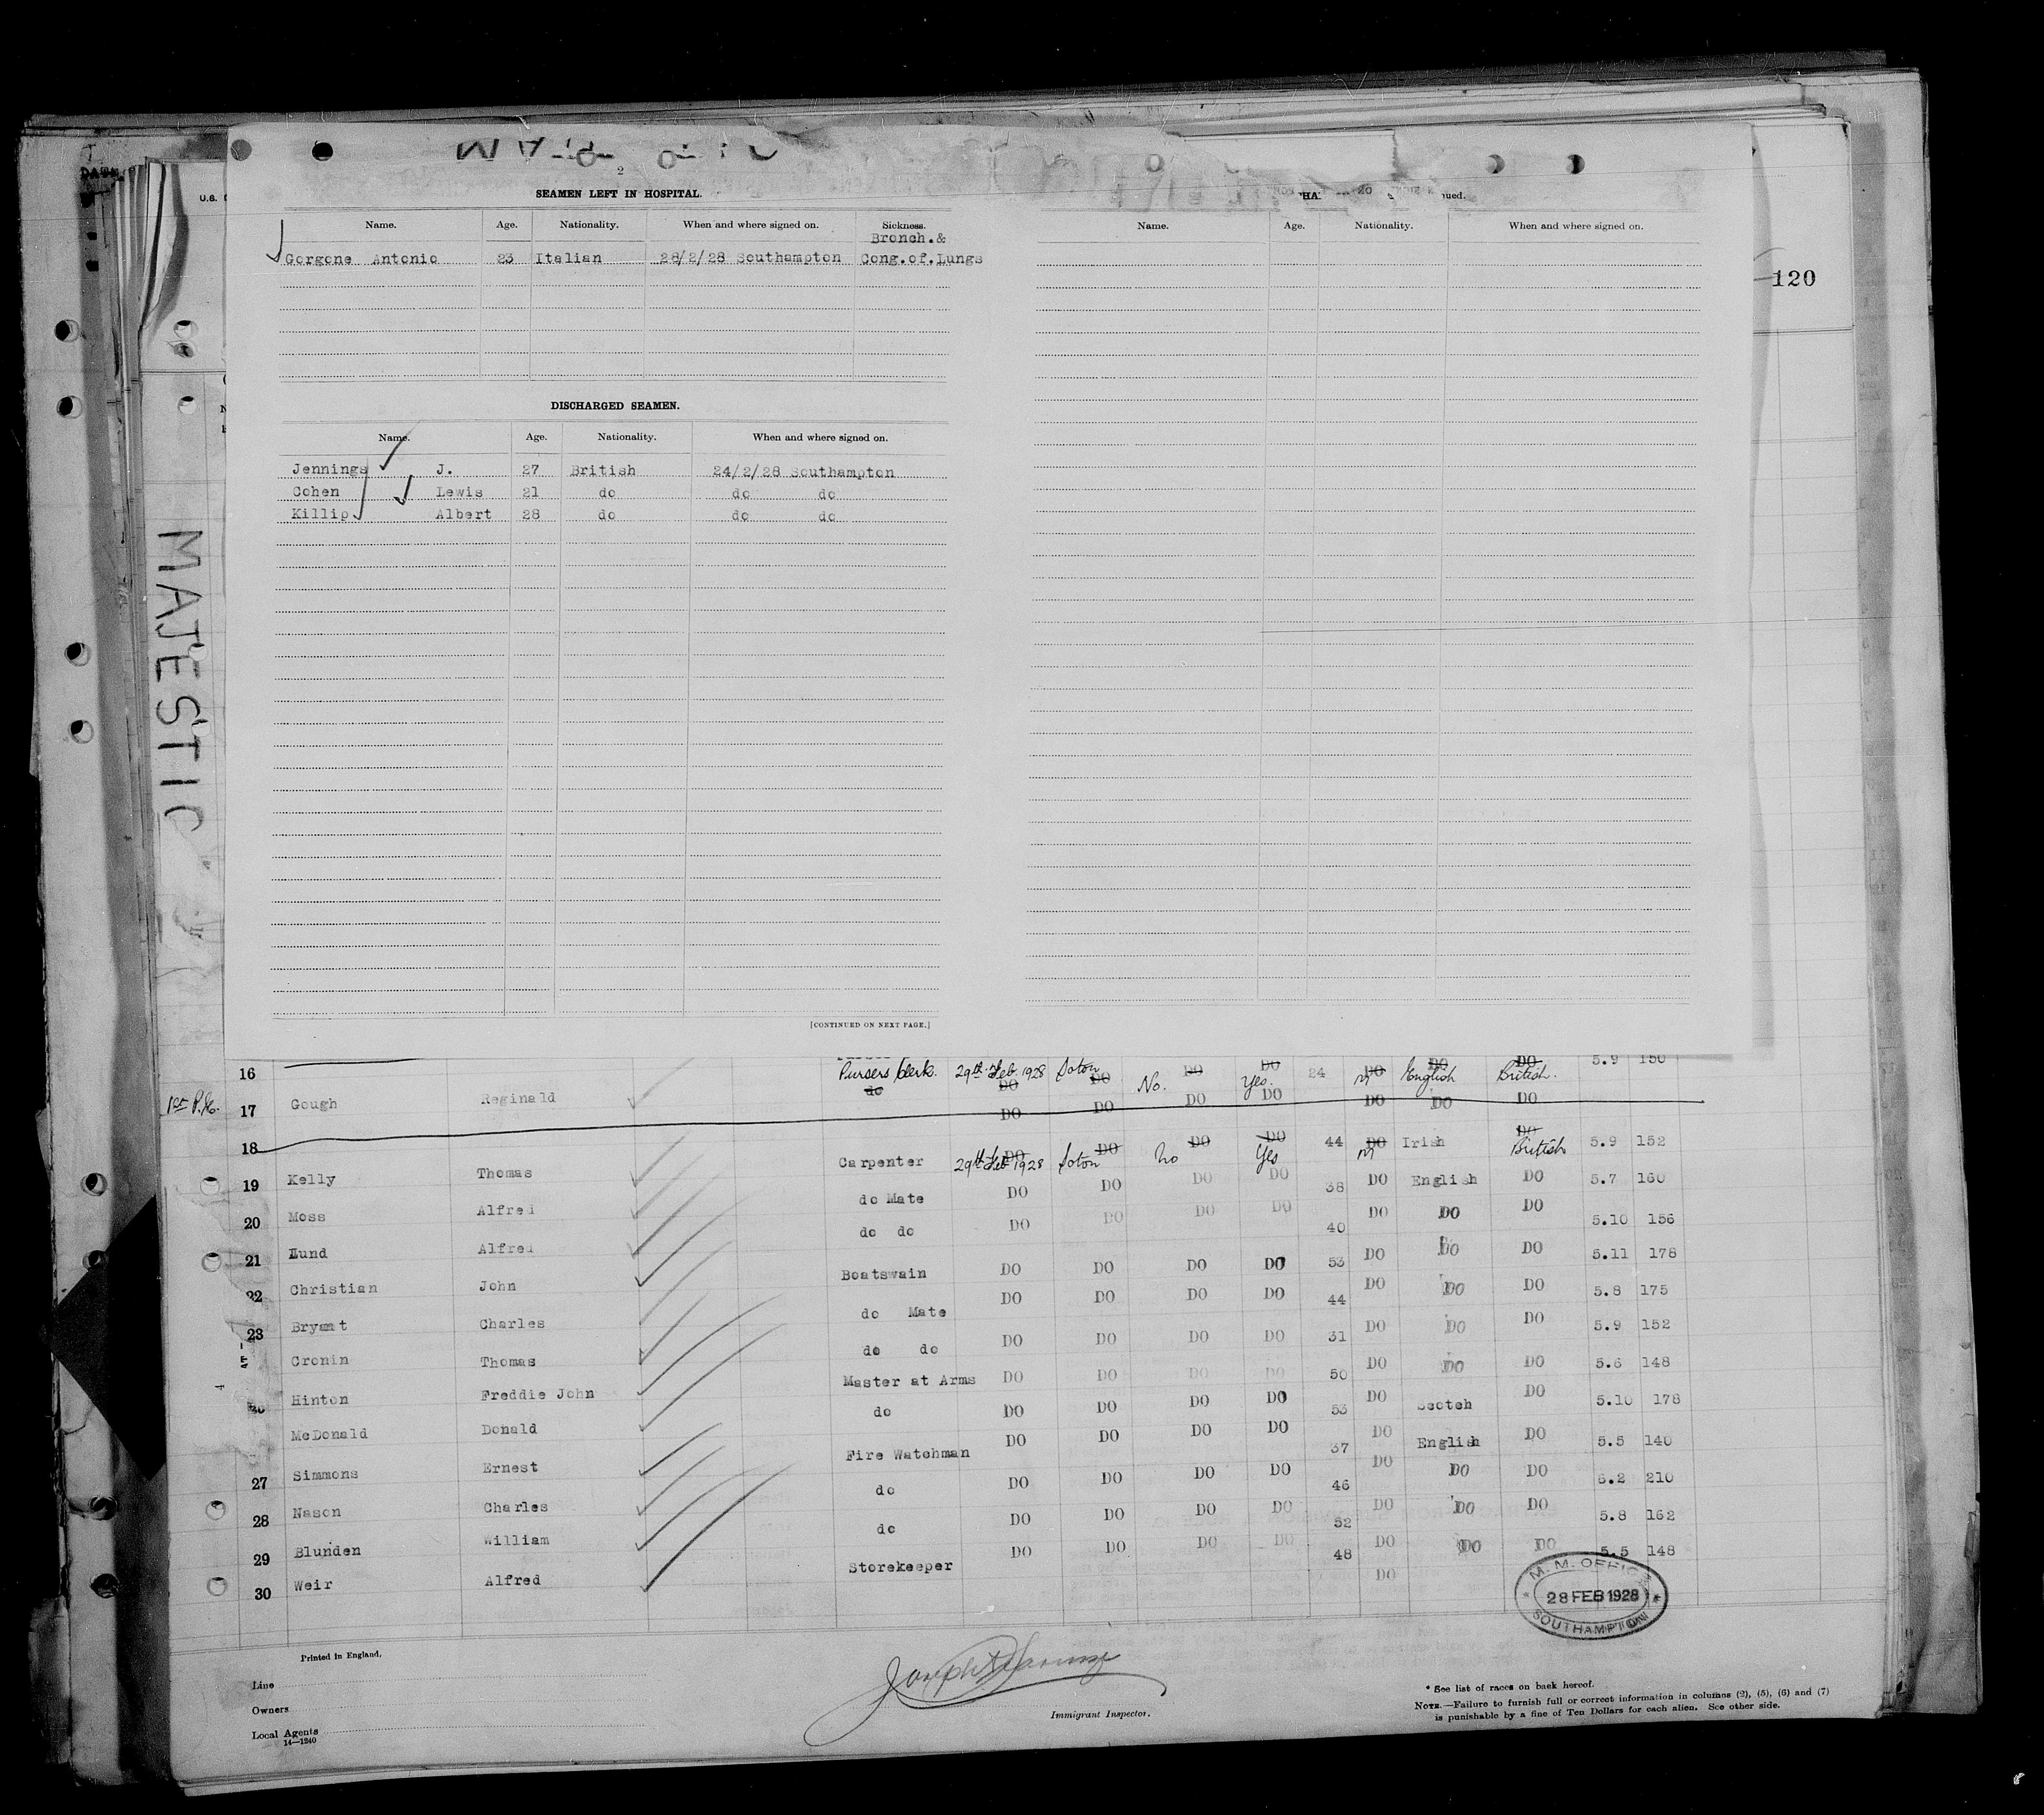 DATE
U.S.
2
SEAMEN LEFT IN HOSPITAL.
Name. Age. Nationality. When and where signed on. Sickness.
Bronch.&
Gorgone Antonio 23 Italian 28/2/28 Southampton Cong.of.Lungs
DISCHARGED SEAMEN.
Name. Age. Nationality. When and where signed on.
Jennings J. 27 British 24/2/28 Southampton
Cohen Lewis 21 do do do
Killip Albert 28 do do do
[CONTINUED ON NEXT PAGE.]
Name. Age. Nationality. When and where signed on.
120
MAJESTIC
16 5.9 150
1st P.C. 17 Gough Reginald Pursers Clerk. do 29th Feb. 1928 DO Soton DO No. DO Yes. DO 24 M DO English DO British. DO
18 DO DO DO DO DO DO DO
19 Kelly Thomas Carpenter 29th Feb 1928 DO Soton DO No DO Yes DO 44 M DO Irish British DO 5.9 152
20 Moss Alfred do Mate DO DO DO DO 38 DO English DO 5.7 160
21 Lund Alfred do do DO DO DO DO 40 DO DO DO 5.10 156
22 Christian John Boatswain DO DO DO DO 53 DO DO DO 5.11 178
23 Bryant Charles do Mate DO DO DO DO 44 DO DO DO 5.8 175
Cronin Thomas do do DO DO DO DO 31 DO DO DO 5.9 152
Hinton Freddie John Master at Arms DO DO DO DO 50 DO DO DO 5.6 148
McDonald Donald do DO DO DO DO 53 DO Scotch DO 5.10 178
27 Simmons Ernest Fire Watchman DO DO DO DO 37 DO English DO 5.5 140
28 Nason Charles do DO DO DO DO 46 DO DO DO 6.2 210
29 Blunden William do DO DO DO DO 52 DO DO DO 5.8 162
30 Weir Alfred Storekeeper DO DO DO DO 48 DO DO DO 5.5 148
DO
M. M. OFFICE
28 FEB 1928
SOUTHAMPTON
Printed in England.
Line
Owners
Local Agents
14—1240
Immigrant Inspector.
* See list of races on back hereof.
NOTE.—Failure to furnish full or correct information in columns (2), (5), (6) and (7)
is punishable by a fine of Ten Dollars for each alien. See other side.